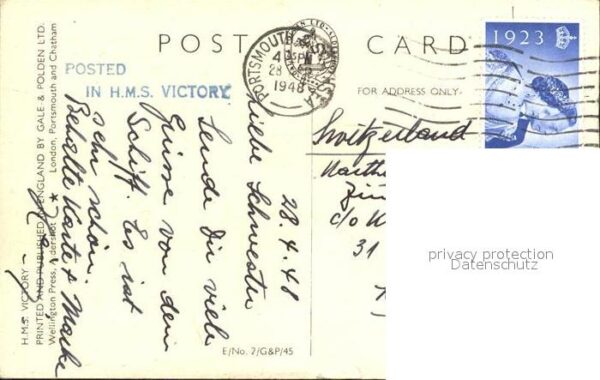 POST CARD
POSTED
IN H.M.S. VICTORY
PORTSMOUTH
28
1948
1923
FOR ADDRESS ONLY
28.4.48
Liebe Schwester
Sende Dir viele
Grüsse von dem
Schiff. Es ist
sehr schön.
Behalte Karte & Marke
Switzerland
c/o
31
H.M.S. VICTORY
PRINTED AND PUBLISHED IN ENGLAND BY GALE & POLDEN LTD.
Wellington Press, Aldershot ★ London, Portsmouth and Chatham
E/No. 7/G&P/45
privacy protection
Datenschutz